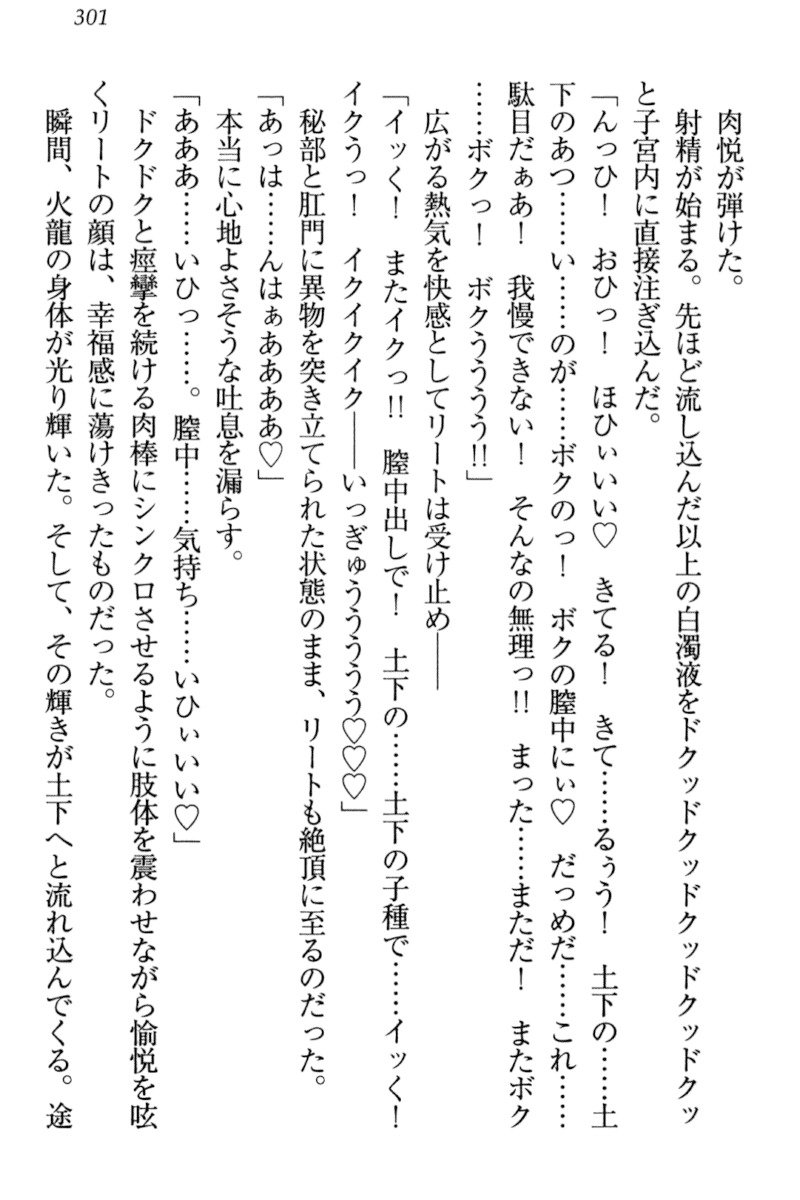 301
肉悦が弾けた。
射精が始まる。先ほど流し込んだ以上の白濁液をドクッドクッドクッドクッ
と子宮内に直接注ぎ込んだ。
「んっひ！　おひっ！　ほひぃいい♡　きてる！　きて……るぅう！　土下の……土
下のあつ……い……のが……ボクのっ！　ボクの膣中にぃ♡　だっめだ……これ……
駄目だぁあ！　我慢できない！　そんなの無理っ!!　まった……まただ！　またボク
……ボクっ！　ボクうううう!!」
広がる熱気を快感としてリートは受け止め――
「イッく！　またイクっ!!　膣中出しで！　土下の……土下の子種で……イッく！
イクうっ！　イクイクイク――いっぎゅうううううう♡♡♡」
秘部と肛門に異物を突き立てられた状態のまま、リートも絶頂に至るのだった。
「あっは……んはぁあああああ♡」
本当に心地よさそうな吐息を漏らす。
「あああ……いひっ……。膣中……気持ち……いひぃいい♡」
ドクドクと痙攣を続ける肉棒にシンクロさせるように肢体を震わせながら愉悦を呟
くリートの顔は、幸福感に蕩けきったものだった。
瞬間、火龍の身体が光り輝いた。そして、その輝きが土下へと流れ込んでくる。途